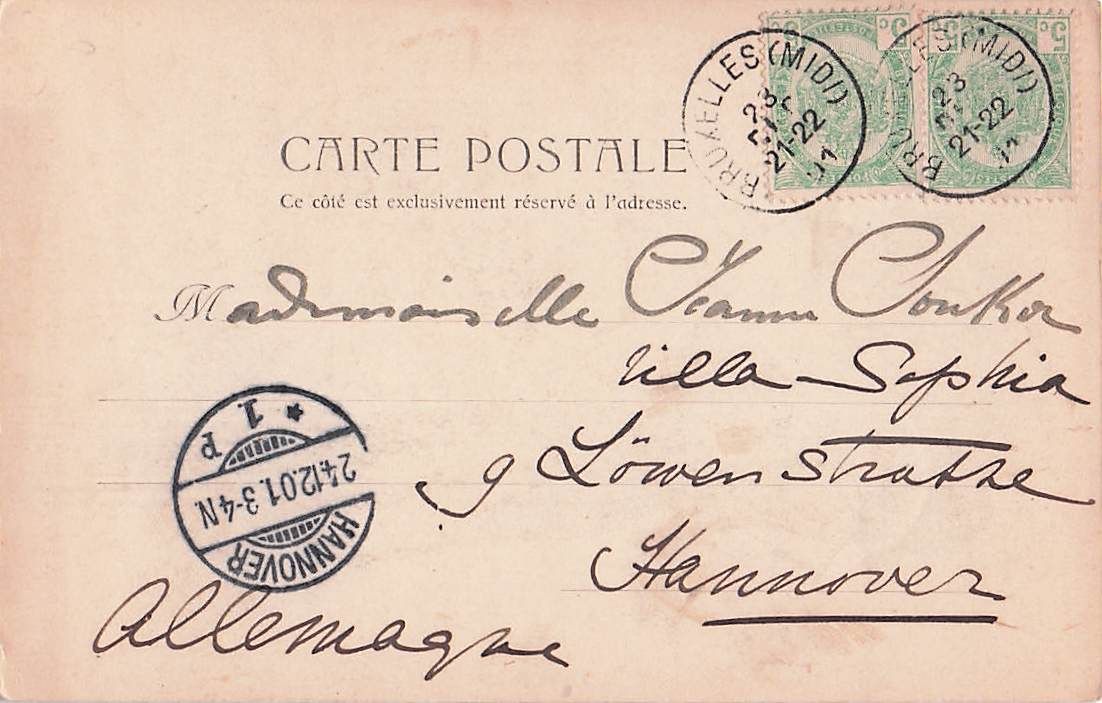 5c 5c
BRUXELLES (MIDI)
23
21-22
01
BRUXELLES (MIDI)
23
21-22
01
CARTE POSTALE
Ce côté est exclusivement réservé à l'adresse.
Mademoiselle Jeanne Jonker
Villa Sophia
9 Löwenstrasse
Hannover
Allemagne
HANNOVER
24.12.01.3-4N.
* 1. P